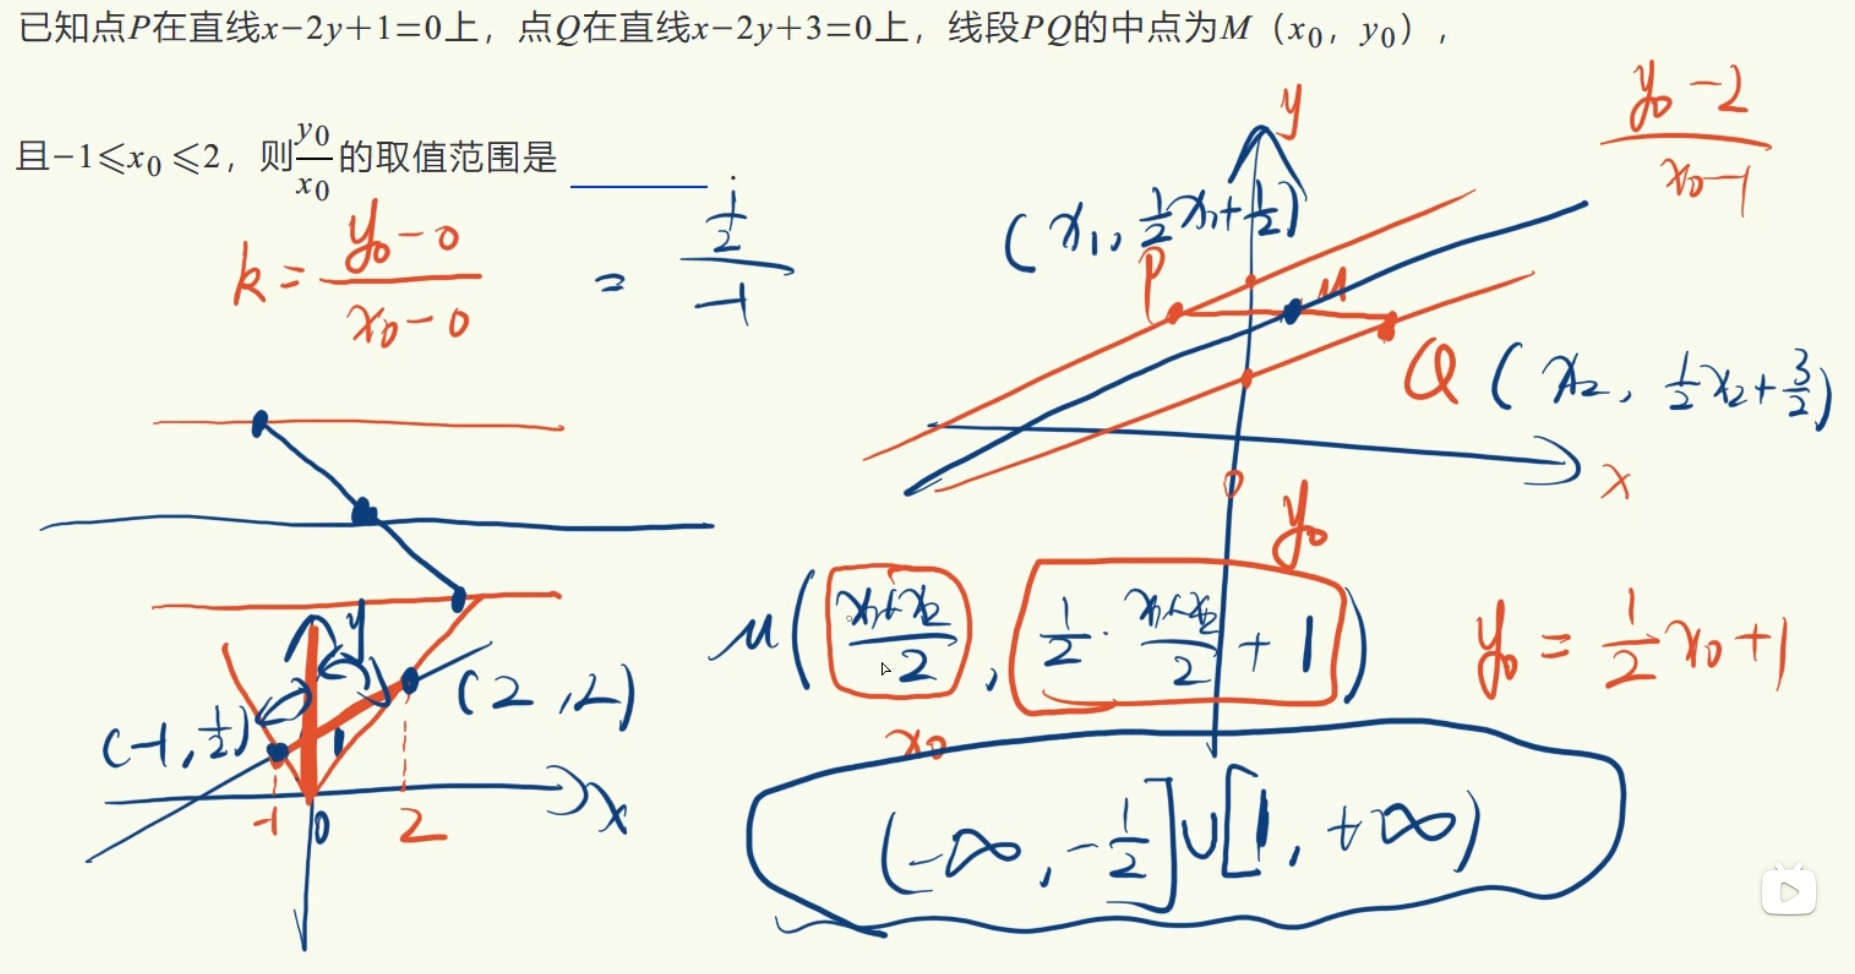 已知点P在直线x−2y+1=0上，点Q在直线x−2y+3=0上，线段PQ的中点为M（x₀，y₀），
且−1⩽x₀⩽2，则y₀/x₀的取值范围是
k = (y₀−0)/(x₀−0) = (1/2)/(−1)
(y₀−2)/(x₀−1)
y
(x₁, 1/2x₁+1/2)
P
M
Q (x₂, 1/2x₂+3/2)
x
0
y₀
M((x₁+x₂)/2, 1/2·(x₁+x₂)/2+1)
x₀
y₀ = 1/2x₀+1
y
(2,2)
(−1,1/2)
1
−1
0
2
x
(−∞, −1/2]∪[1, +∞)